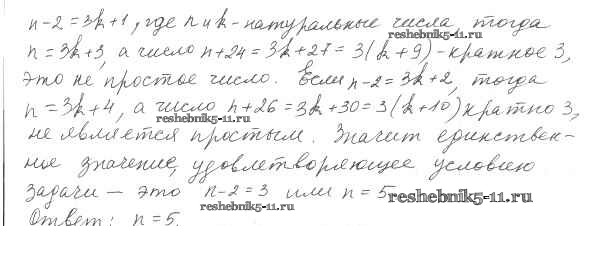 n-2=3k+1, где n и k - натуральные числа, тогда
reshebnik5-11.ru
n=3k+3, а число n+24=3k+27=3(k+9)-кратное 3,
это не простое число. Если n-2=3k+2, тогда
n=3k+4, а число n+26=3k+30=3(k+10) кратно 3,
reshebnik5-11.ru
не является простым. Значит единствен-
ное значение, удовлетворяющее условию
задачи — это n-2=3 или n=5
reshebnik5-11.ru
reshebnik5-11.ru
Ответ: n=5.